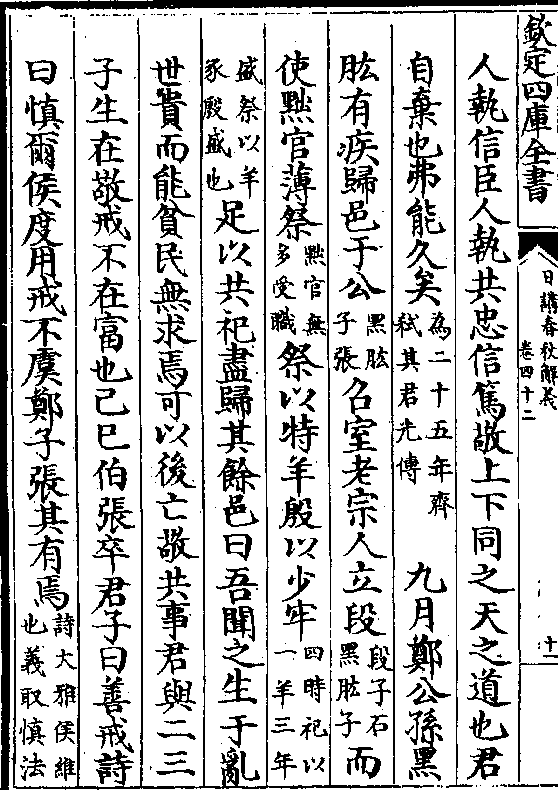 欽定四庫全書
日講春秋解義 卷四十二
十一
人執信臣人執共忠信篤敬上下同之天之道也君
自棄也弗能久矣為二十五年齊弑其君光傳 九月鄭公孫黑
肱有疾歸邑于公黑肱子張召室老宗人立段段子石黑肱子而
使黜官薄祭黜官無多受職祭以特羊殷以少牢四時祀以一羊三年
盛祭以羊豕殷盛也足以共祀盡歸其餘邑曰吾聞之生于亂
世貴而能貧民無求焉可以後亡敬共事君與二三
子生在敬戒不在富也己巳伯張卒君子曰善戒詩
曰慎爾侯度用戒不虞鄭子張其有焉詩大雅侯維也義取慎法